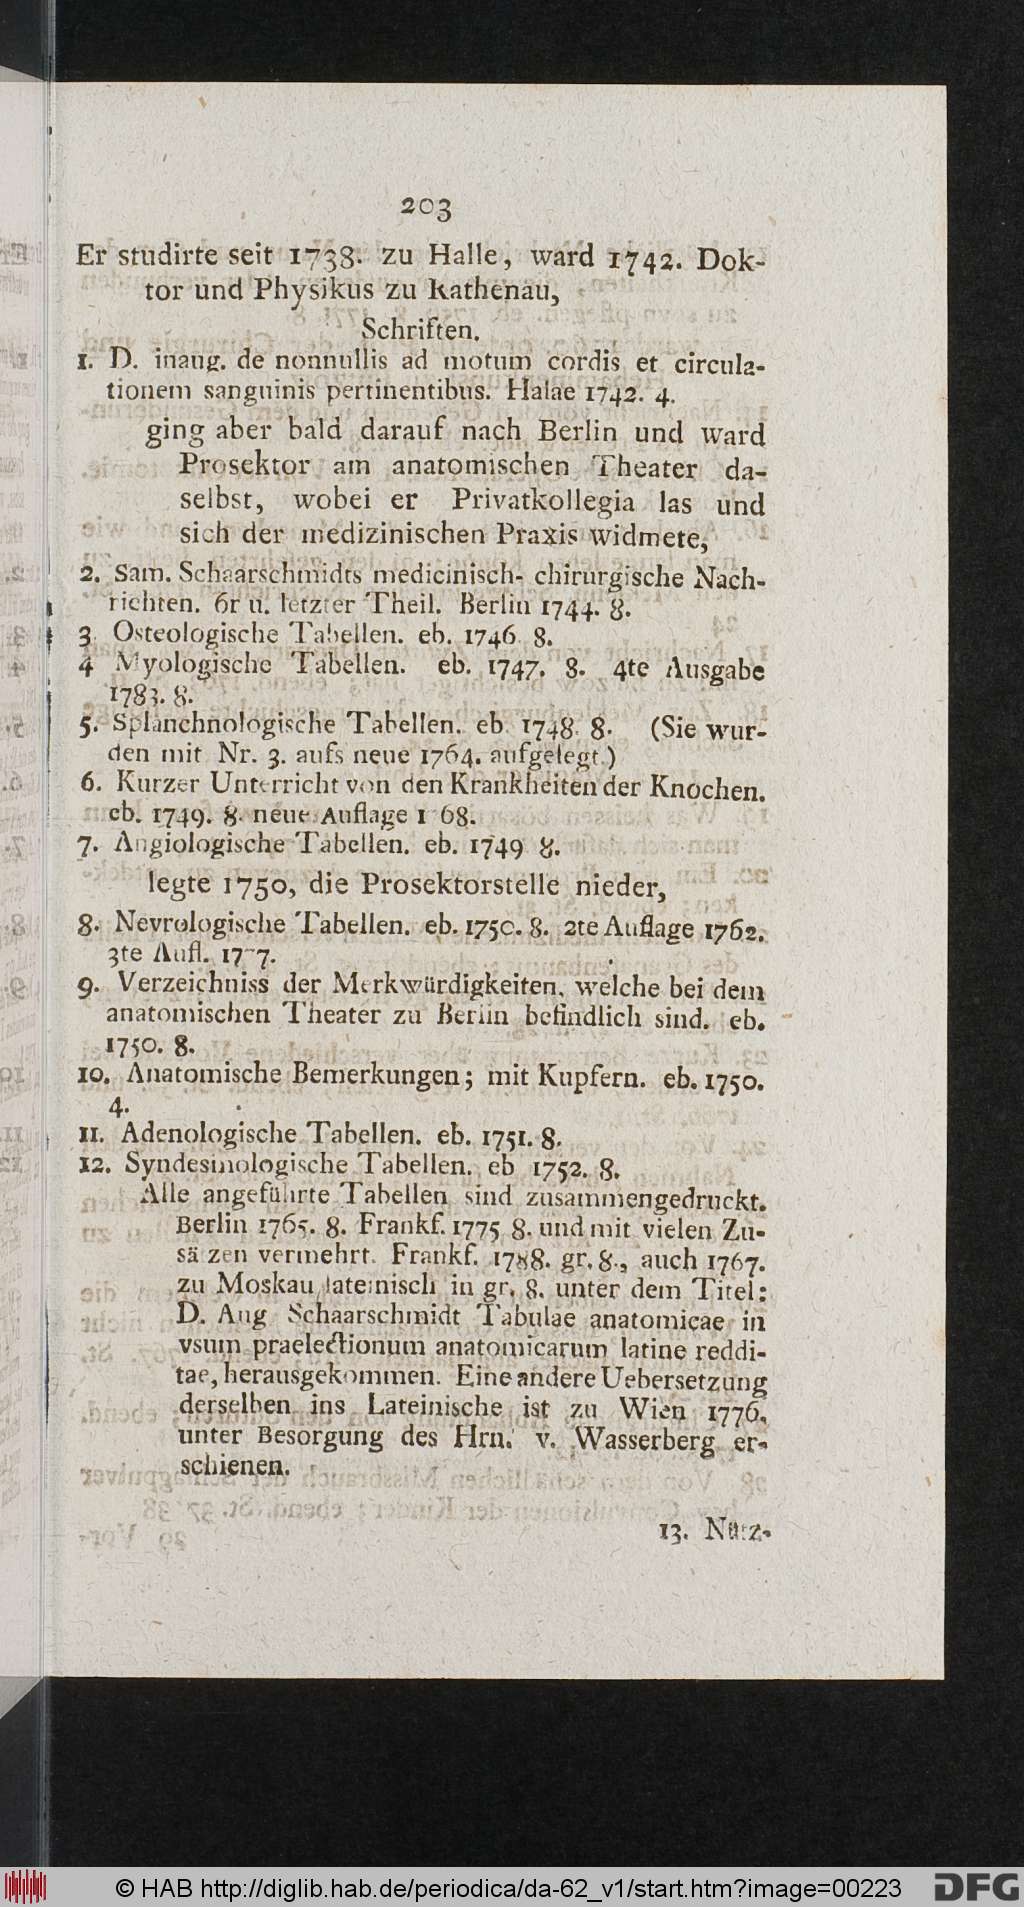 203
Er studirte seit 1738. zu Halle, ward 1742. Dok-
tor und Physikus zu Rathenau,
Schriften.
1. D. inaug. de nonnullis ad motum cordis et circula-
tionem sanguinis pertinentibus. Halae 1742. 4.
ging aber bald darauf nach Berlin und ward
Prosektor am anatomischen Theater da-
selbst, wobei er Privatkollegia las und
sich der medizinischen Praxis widmete,
2. Sam. Schaarschmidts medicinisch-chirurgische Nach-
richten. 6r u. letzter Theil. Berlin 1744. 8.
3 Osteologische Tabellen. eb. 1746 8.
4 Myologische Tabellen. eb. 1747. 8. 4te Ausgabe
1783. 8.
5. Splanchnologische Tabellen. eb. 1748. 8. (Sie wur-
den mit Nr. 3. aufs neue 1764. aufgelegt.)
6. Kurzer Unterricht von den Krankheiten der Knochen.
eb. 1749. 8. neue Auflage 1 68.
7. Angiologische Tabellen. eb. 1749 8.
legte 1750, die Prosektorstelle nieder,
8. Nevrologische Tabellen. eb. 1750. 8. 2te Auflage 1762.
3te Aufl. 1777.
9. Verzeichniss der Merkwürdigkeiten, welche bei dem
anatomischen Theater zu Berlin befindlich sind. eb.
1750. 8.
10. Anatomische Bemerkungen; mit Kupfern. eb. 1750.
4.
11. Adenologische Tabellen. eb. 1751. 8.
12. Syndesmologische Tabellen. eb 1752. 8.
Alle angeführte Tabellen sind zusammengedruckt.
Berlin 1765. 8. Frankf. 1775 8. und mit vielen Zu-
sä zen vermehrt. Frankf. 1788. gr. 8., auch 1767.
zu Moskau lateinisch in gr. 8. unter dem Titel:
D. Aug Schaarschmidt Tabulae anatomicae in
vsum praelectionum anatomicarum latine reddi-
tae, herausgekommen. Eine andere Uebersetzung
derselben ins Lateinische ist zu Wien 1776.
unter Besorgung des Hrn. v. Wasserberg er-
schienen.
13. Nütz-
© HAB http://diglib.hab.de/periodica/da-62_v1/start.htm?image=00223 DFG